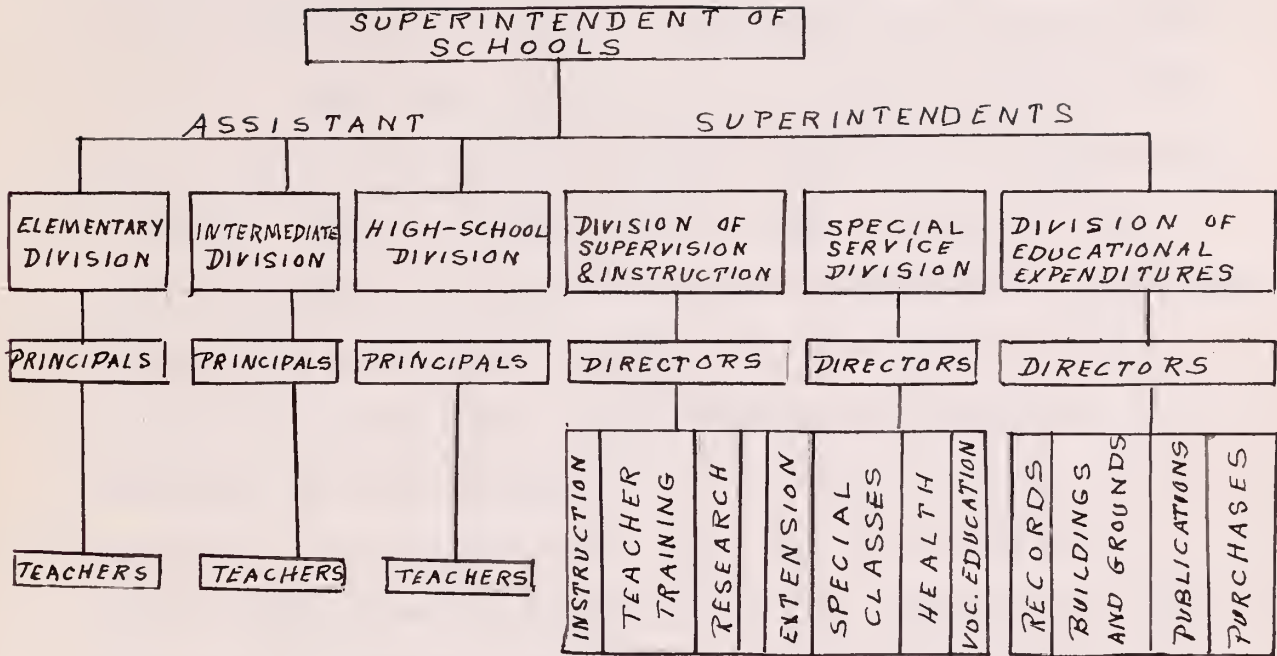 SUPERINTENDENT OF
SCHOOLS
ASSISTANT SUPERINTENDENTS
ELEMENTARY
DIVISION
INTERMEDIATE
DIVISION
HIGH-SCHOOL
DIVISION
DIVISION OF
SUPERVISION
& INSTRUCTION
SPECIAL
SERVICE
DIVISION
DIVISION OF
EDUCATIONAL
EXPENDITURES
PRINCIPALS
PRINCIPALS
PRINCIPALS
DIRECTORS
DIRECTORS
DIRECTORS
TEACHERS
TEACHERS
TEACHERS
INSTRUCTION
TEACHER
TRAINING
RESEARCH
EXTENSION
SPECIAL
CLASSES
HEALTH
VOC. EDUCATION
RECORDS
BUILDINGS
AND GROUNDS
PUBLICATIONS
PURCHASES